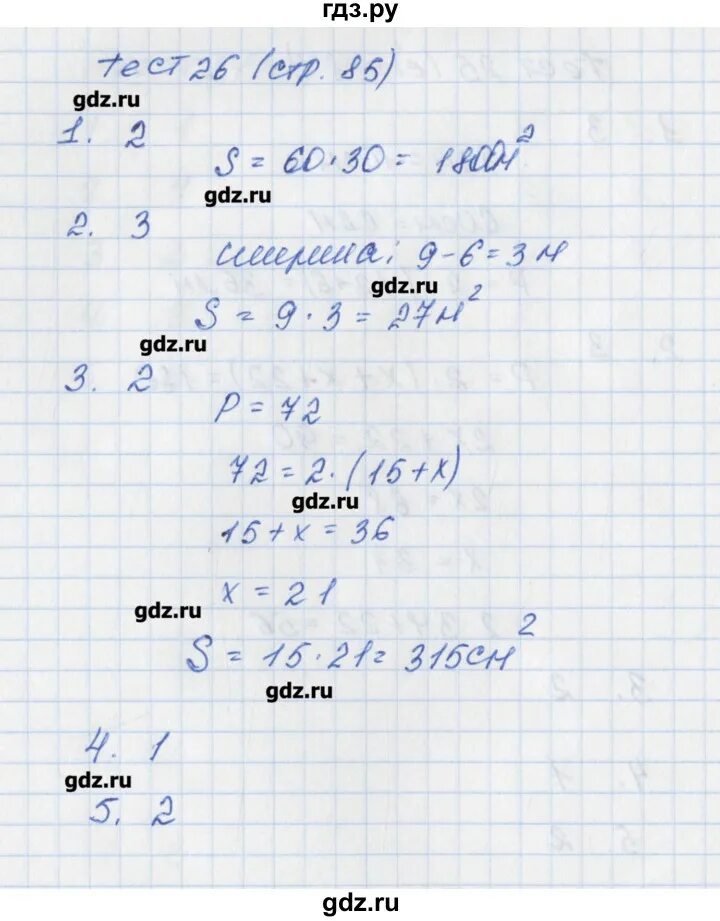 гдз.ру
тест 26 (стр. 85)
gdz.ru
1. 2
S = 60·30 = 1800м²
gdz.ru
2. 3
ширина: 9-6=3м
gdz.ru
S = 9·3 = 27м²
gdz.ru
3. 2
P = 72
72 = 2·(15+x)
gdz.ru
15+x = 36
x = 21
gdz.ru
S = 15·21 = 315см²
gdz.ru
4. 1
gdz.ru
5. 2
gdz.ru